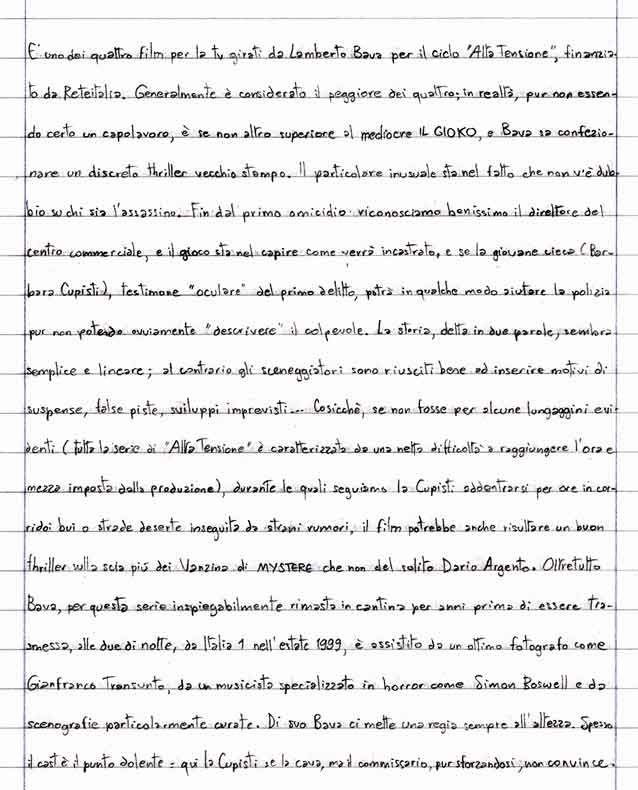 E' uno dei quattro film per la tv girati da Lamberto Bava per il ciclo "Alta Tensione", finanzia-
to da Reteitalia. Generalmente è considerato il peggiore dei quattro; in realtà, pur non essen-
do certo un capolavoro, è se non altro superiore al mediocre IL GIOKO, e Bava sa confezio-
nare un discreto thriller vecchio stampo. Il particolare inusuale sta nel fatto che non v'è dub-
bio su chi sia l'assassino. Fin dal primo omicidio riconosciamo benissimo il direttore del
centro commerciale, e il gioco sta nel capire come verrà incastrato, e se la giovane cieca (Bar-
bara Cupisti), testimone "oculare" del primo delitto, potrà in qualche modo aiutare la polizia
pur non potendo ovviamente "descrivere" il colpevole. La storia, detta in due parole, sembra
semplice e lineare; al contrario gli sceneggiatori sono riusciti bene ad inserire motivi di
suspense, false piste, sviluppi imprevisti... Cosicchè, se non fosse per alcune lungaggini evi-
denti (tutta la serie di "Alta Tensione" è caratterizzata da una netta difficoltà a raggiungere l'ora e
mezza imposta dalla produzione), durante le quali seguiamo la Cupisti addentrarsi per ore in cor-
ridoi bui o strade deserte inseguita da strani rumori, il film potrebbe anche risultare un buon
thriller sulla scia più dei Vanzina di MYSTERE che non del solito Dario Argento. Oltretutto
Bava, per questa serie inspiegabilmente rimasta in cantina per anni prima di essere tra-
smessa, alle due di notte, da Italia 1 nell'estate 1999, è assistito da un ottimo fotografo come
Gianfranco Transunto, da un musicista specializzato in horror come Simon Boswell e da
scenografie particolarmente curate. Di suo Bava ci mette una regia sempre all'altezza. Spesso
il cast è il punto dolente: qui la Cupisti se la cava, ma il commissario, pur sforzandosi, non convince.